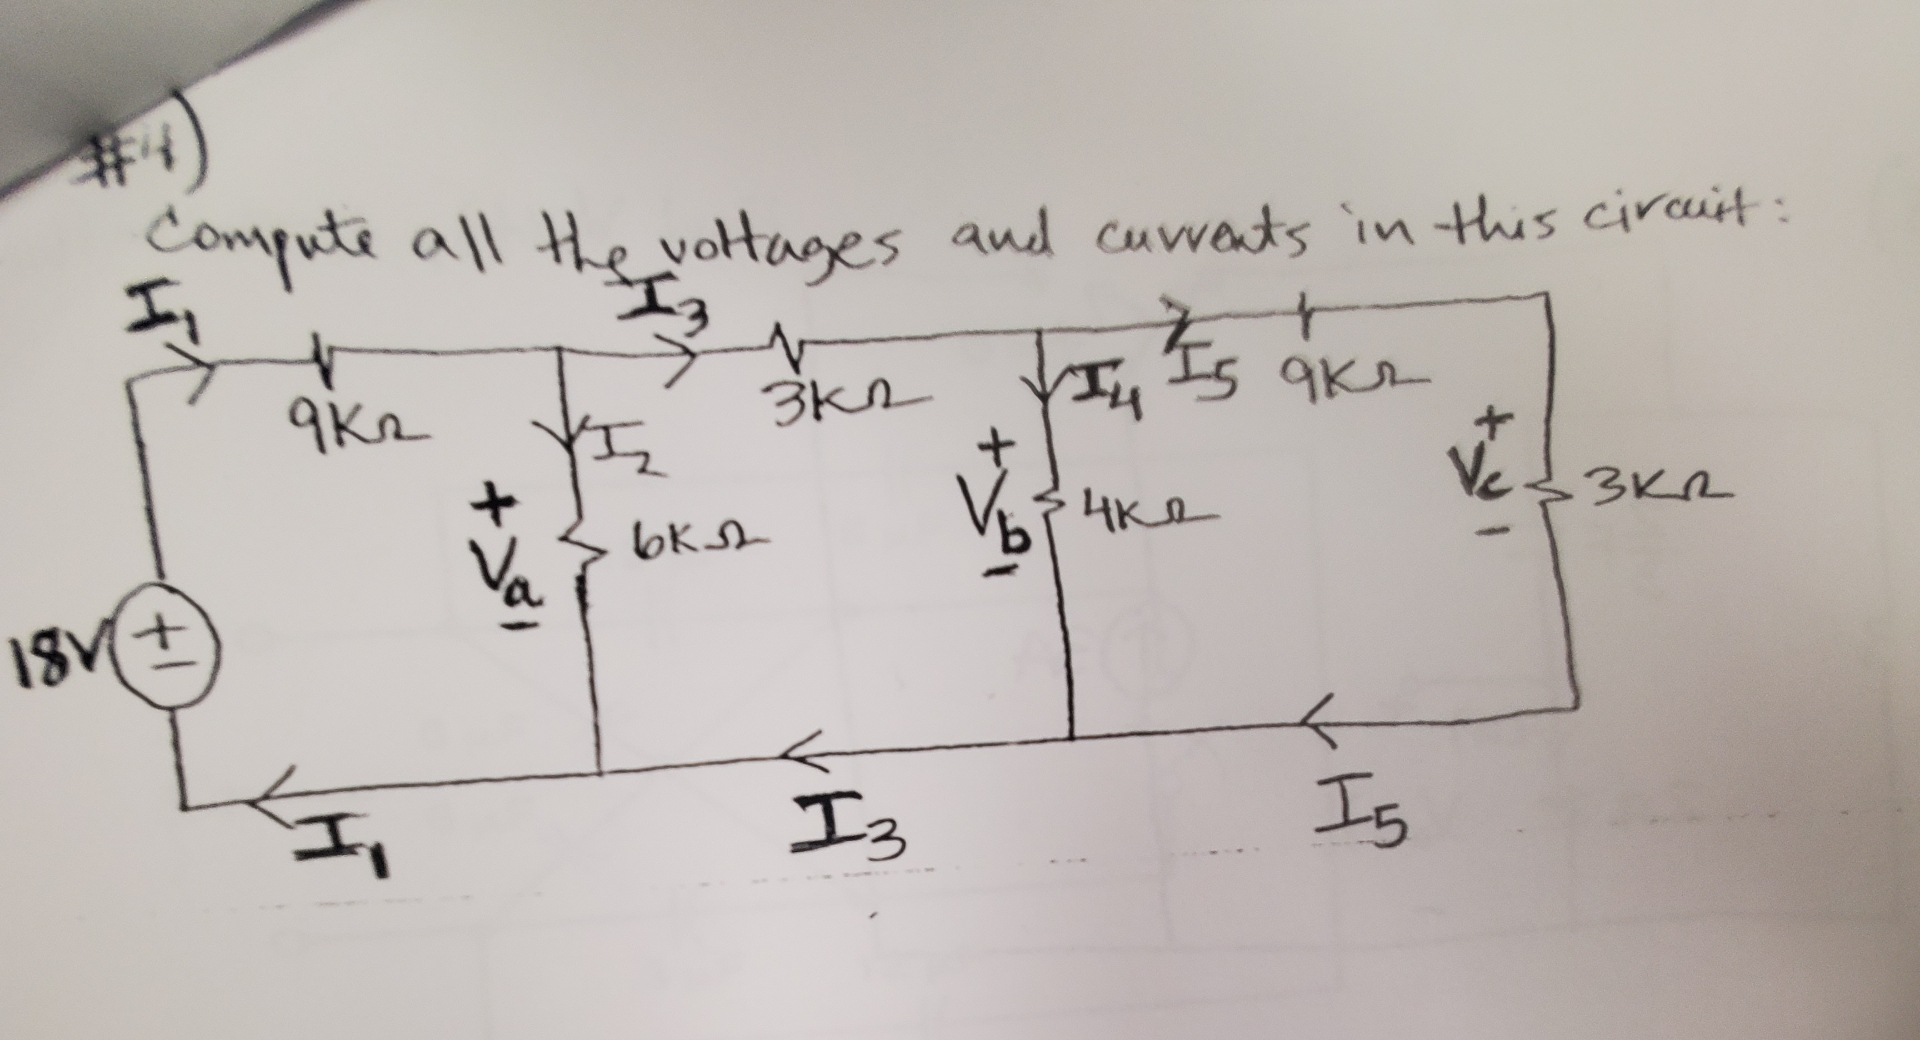 #4)
Compute all the voltages and currents in this circuit:
I1
I3
9KΩ
3KΩ
I4
I5
9KΩ
I2
+
Va
-
6KΩ
+
Vb
-
4KΩ
+
Vc
-
3KΩ
18V
+
-
I1
I3
I5